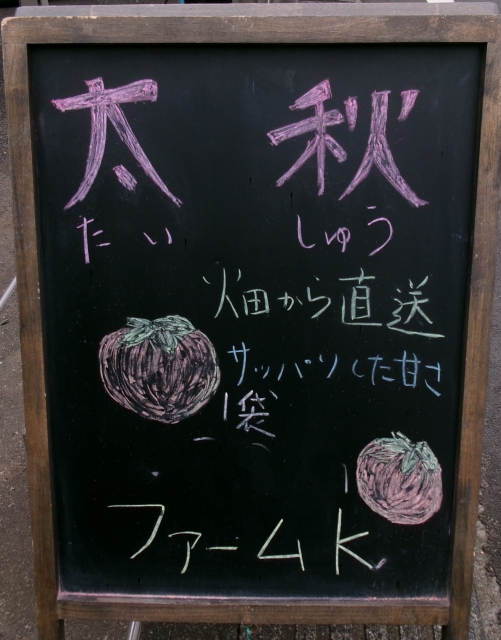 太秋
たいしゅう
畑から直送
サッパリした甘さ
1袋
ファームK